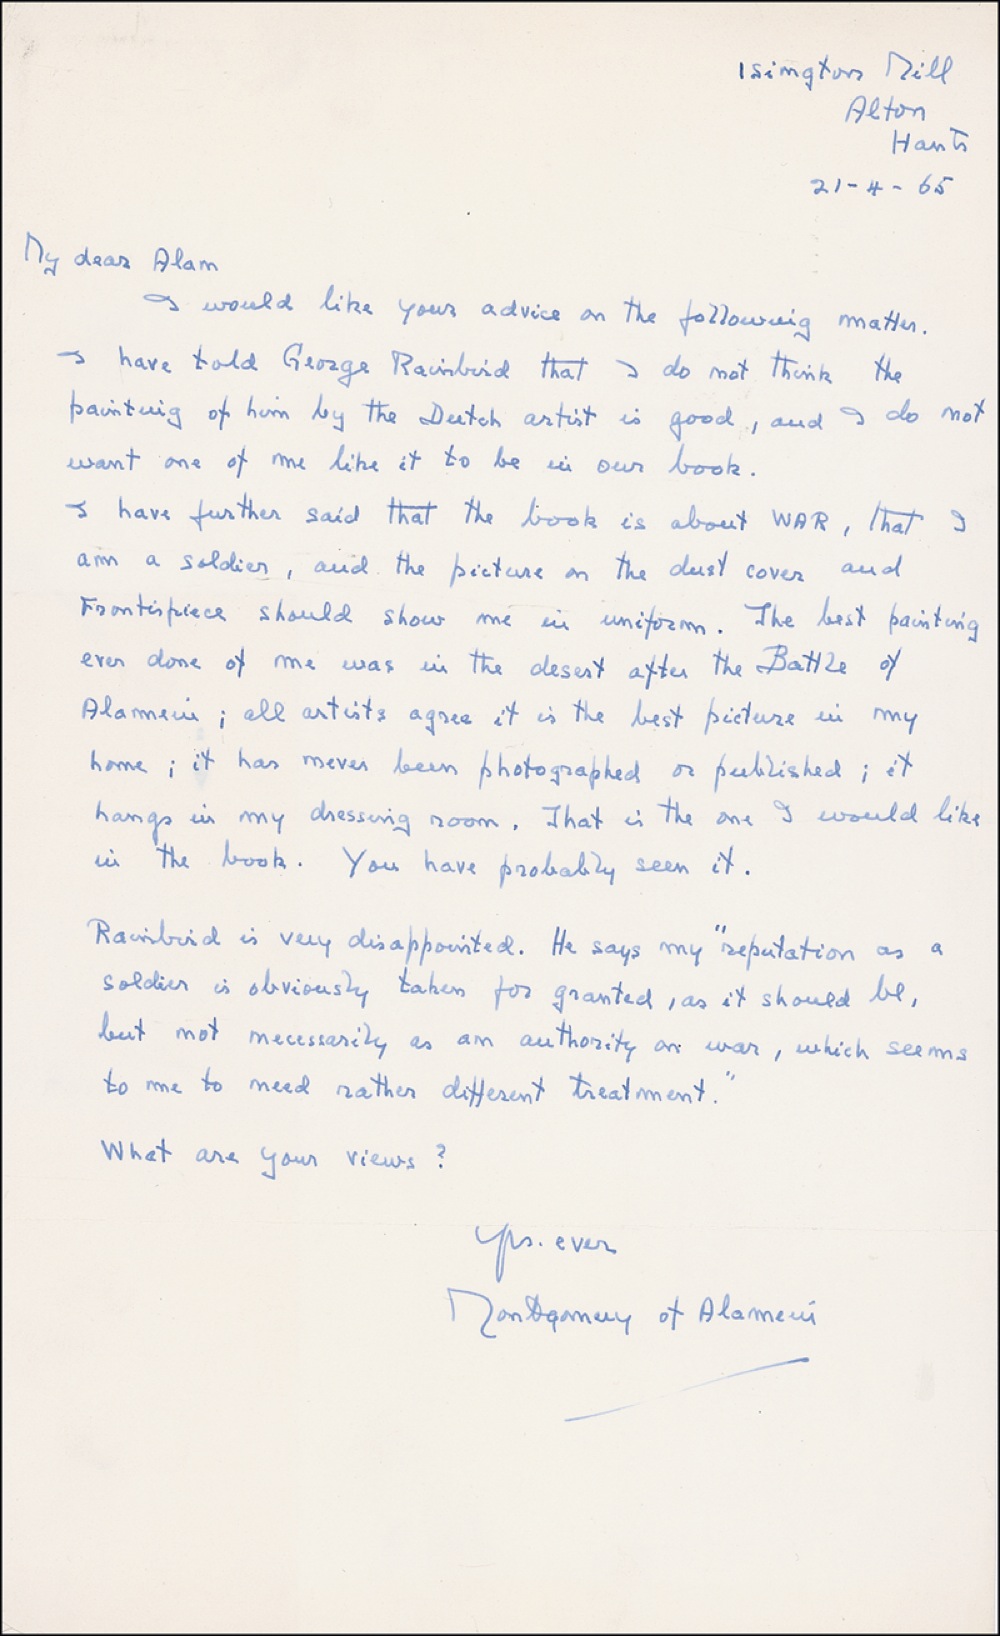 Isington Mill
Alton
Hants
21-4-65
My dear Alan
I would like your advice on the following matter.
I have told George Rainbird that I do not think the
painting of him by the Dutch artist is good, and I do not
want one of me like it to be in our book.
I have further said that the book is about WAR, that I
am a soldier, and the picture on the dust cover and
Frontispiece should show me in uniform. The best painting
ever done of me was in the desert after the Battle of
Alamein; all artists agree it is the best picture in my
home; it has never been photographed or published; it
hangs in my dressing room. That is the one I would like
in the book. You have probably seen it.
Rainbird is very disappointed. He says my "reputation as a
soldier is obviously taken for granted, as it should be,
but not necessarily as an authority on war, which seems
to me to need rather different treatment."
What are your views?
Yrs. ever
Montgomery of Alamein